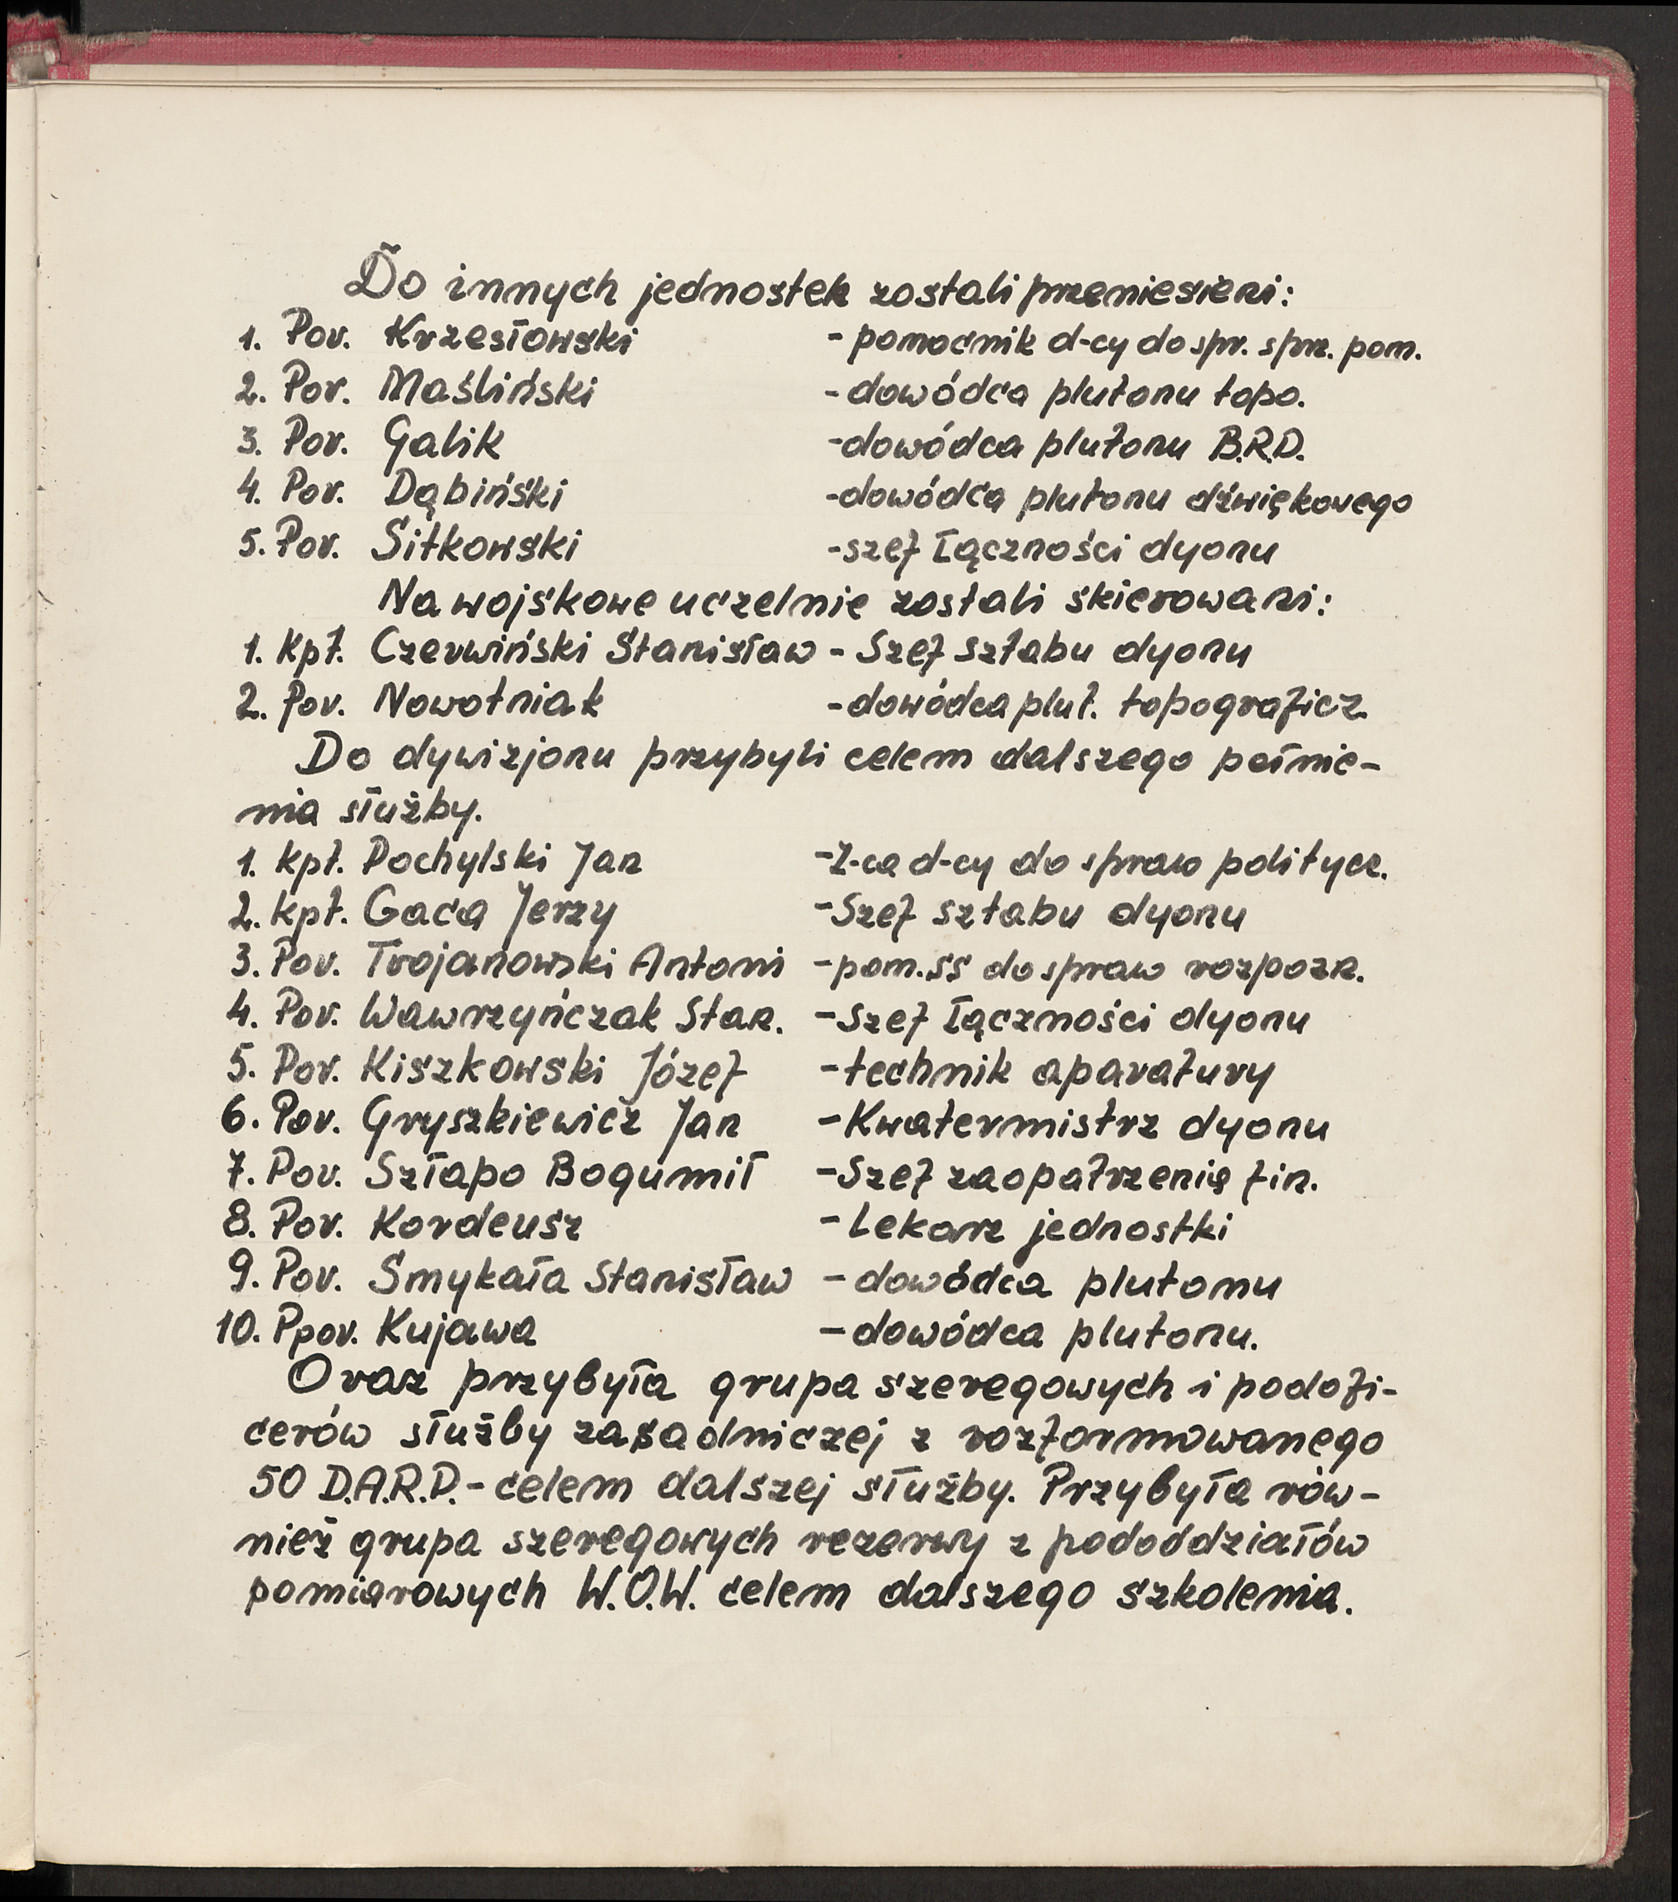 Do innych jednostek zostali przeniesieni:
1. Por. Krzesłowski - pomocnik d-cy do spr. sprz. pom.
2. Por. Maśliński - dowódca plutonu topo.
3. Por. Galik - dowódca plutonu B.R.D.
4. Por. Dąbiński - dowódca plutonu dźwiękowego
5. Por. Sitkowski - szef łączności dyonu
Na wojskowe uczelnie zostali skierowani:
1. Kpt. Czerwiński Stanisław - Szef sztabu dyonu
2. Por. Nowotniak - dowódca plut. topograficz.
Do dywizjonu przybyli celem dalszego pełnie-
nia służby.
1. Kpt. Pochylski Jan - Z-ca d-cy do spraw politycz.
2. Kpt. Gaca Jerzy - Szef sztabu dyonu
3. Por. Trojanowski Antoni - pom. SS do spraw rozpozn.
4. Por. Wawrzyńczak Stan. - Szef łączności dyonu
5. Por. Kiszkowski Józef - technik aparatury
6. Por. Gryszkiewicz Jan - Kwatermistrz dyonu
7. Por. Sztapo Bogumił - Szef zaopatrzenia fin.
8. Por. Kordeusz - Lekarz jednostki
9. Por. Smykała Stanisław - dowódca plutonu
10. Ppor. Kujawa - dowódca plutonu.
Oraz przybyła grupa szeregowych i podofi-
cerów służby zasadniczej z rozformowanego
50 D.A.R.P. - celem dalszej służby. Przybyła rów-
nież grupa szeregowych rezerwy z pododdziałów
pomiarowych W.O.W. celem dalszego szkolenia.